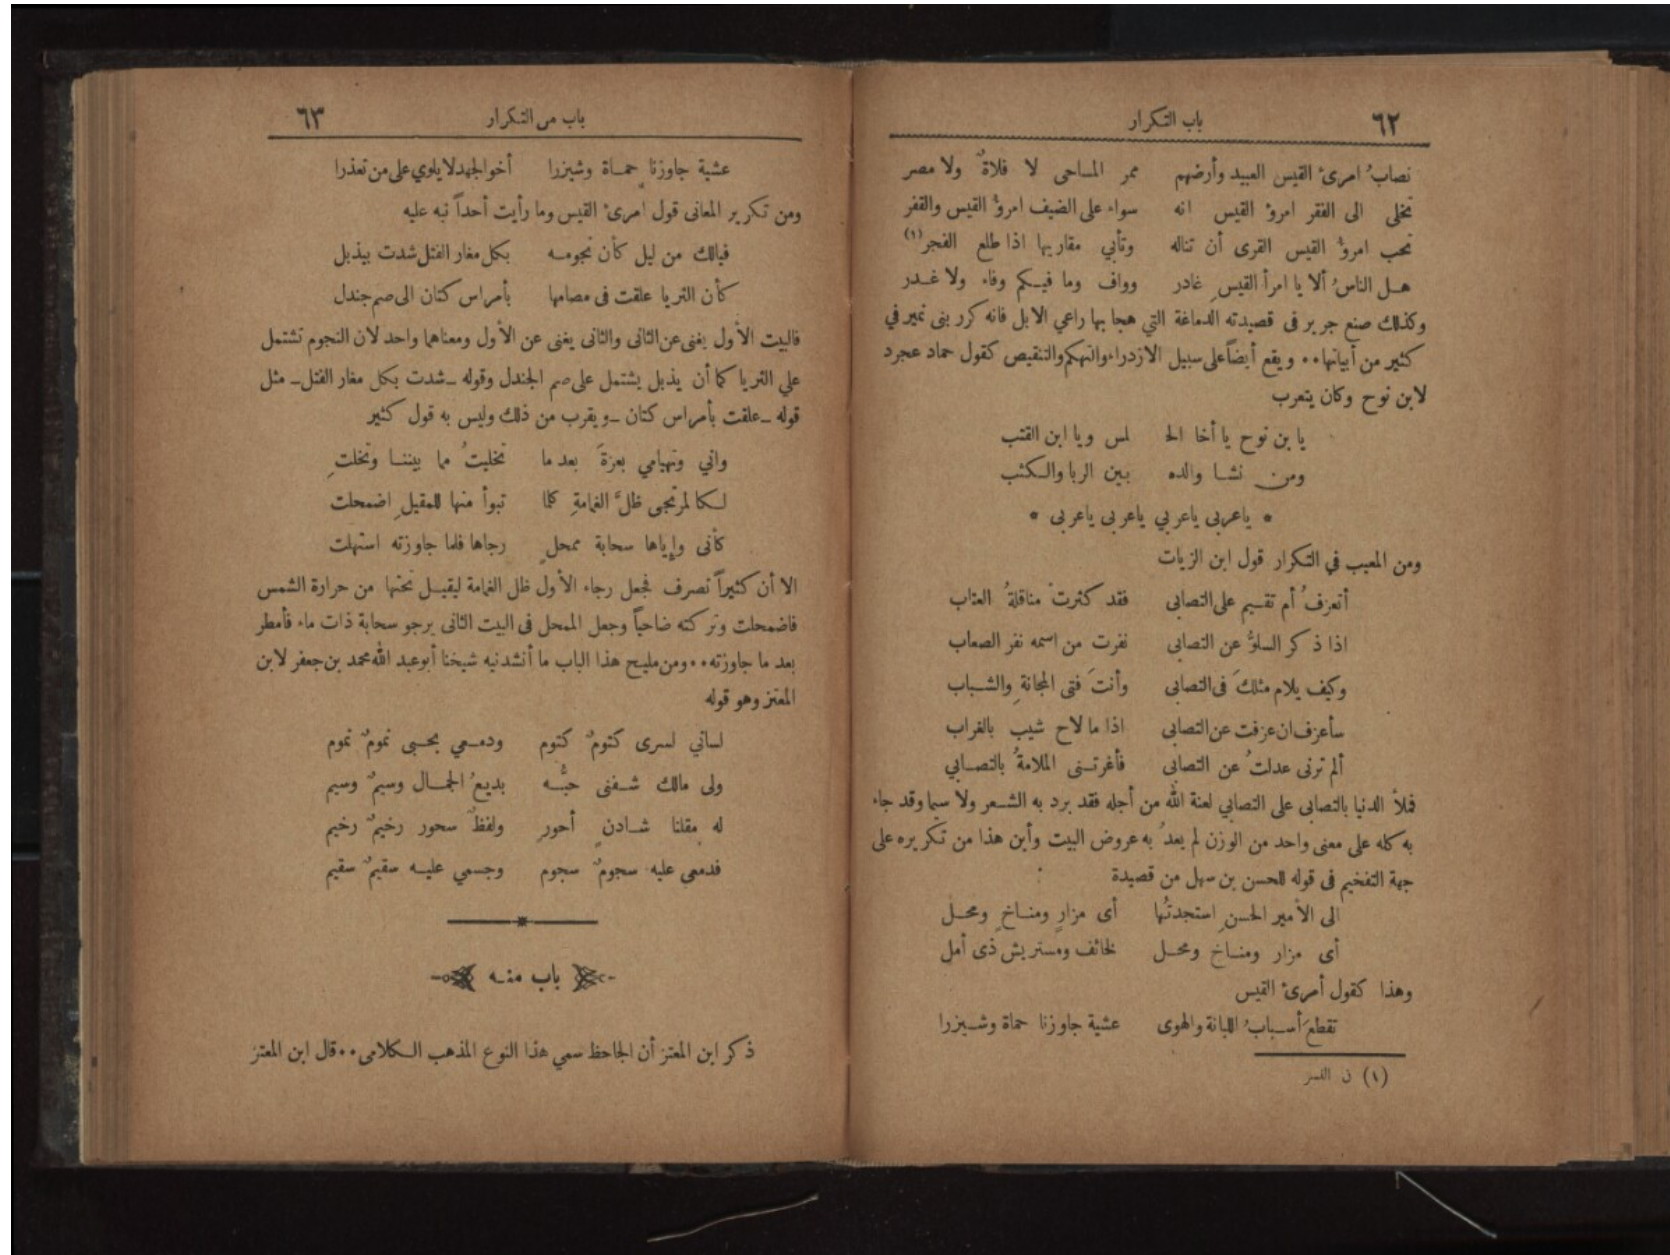 ٦٢
باب التكرار
نصابُ امرئ القيس العبيد وأرضهم ممر المساحى لا فلاةٌ ولا مصر
تخلى الى الفقر امرؤ القيس انه سواء على الضيف امرؤُ القيس والقفر
تحب امرؤُ القيس القرى أن تناله وتأبي مقاريها اذا طلع الفجر(١)
هل الناسُ ألا يا امرأ القيسِ غادر وواف وما فيكم وفاء ولا غدر
وكذلك صنع جرير فى قصيدته الدماغة التي هجا بها راعي الابل فانه كرر بنى نمير في
كثير من أبياتها.. ويقع أيضاً على سبيل الازدراء والتهكم والتنقيص كقول حماد عجرد
لابن نوح وكان يتعرب
يا بن نوح يا أخا الحـ ـلس ويا ابن القتب
ومن نشا والده بين الربا والكثب
* ياعربى ياعربي ياعربى ياعربى *
ومن المعيب في التكرار قول ابن الزيات
أتعزفُ أم تقيم على التصابى فقد كثرت مناقلةُ العتاب
اذا ذكر السلوُّ عن التصابى نفرت من اسمه نفر الصعاب
وكيف يلام مثلكَ فى التصابى وأنتَ فتى المجانةِ والشباب
سأعزف ان عزفت عن التصابى اذا ما لاح شيب بالغراب
ألم ترنى عدلتُ عن التصابى فأغرتنى الملامةُ بالتصابي
فملأ الدنيا بالتصابى على التصابي لعنة الله من أجله فقد برد به الشعر ولا سيما وقد جاء
به كله على معنى واحد من الوزن لم يعدُ به عروض البيت وأين هذا من تكريره على
جهة التفخيم فى قوله للحسن بن سهل من قصيدة
الى الأمير الحسنِ استجدتُها أى مزارٍ ومناخٍ ومحل
أى مزار ومناخ ومحل لخائف ومستريش ذى أمل
وهذا كقول أمرئ القيس
تقطعَ أسبابُ اللبانة والهوى عشية جاوزنا حماة وشيزرا
(١) ن النسر
٦٣
باب من التكرار
عشية جاوزنا حماة وشيزرا أخو الجهد لا يلوي على من تعذرا
ومن تكرير المعانى قول امرئ القيس وما رأيت أحداً نبه عليه
فيالك من ليل كأن نجومه بكل مغار الفتل شدت بيذبل
كأن الثريا علقت فى مصامها بأمراس كتان الى صم جندل
فالبيت الأول يغنى عن الثانى والثانى يغنى عن الأول ومعناهما واحد لان النجوم تشتمل
علي الثريا كما أن يذبل يشتمل على صم الجندل وقوله ـ شدت بكل مغار الفتل ـ مثل
قوله ـ علقت بأمراس كتان ـ ويقرب من ذلك وليس به قول كثير
واني وتهيامي بعزةَ بعد ما تخليتُ مما بيننا وتخلتِ
لكا لمرتجى ظلَّ الغمامةِ كلما تبوأ منها للمقيلِ اضمحلت
كأنى وإياها سحابة ممحلٍ رجاها فلما جاوزته استهلت
الا أن كثيراً تصرف فجعل رجاء الأول ظل الغمامة ليقيل تحتها من حرارة الشمس
فاضمحلت وتركته ضاحياً وجعل الممحل فى البيت الثانى يرجو سحابة ذات ماء فأمطر
بعد ما جاوزته.. ومن مليح هذا الباب ما أنشدنيه شيخنا أبو عبد الله محمد بن جعفر لابن
المعتز وهو قوله
لساني لسرى كتومٌ كتوم ودمعي بحبى نمومٌ نموم
ولى مالك شفنى حبُّه بديعُ الجمال وسيمٌ وسيم
له مقلتا شادنٍ أحورِ ولفظٌ سحور رخيمٌ رخيم
فدمعى عليه سجومٌ سجوم وجسمي عليه سقيمٌ سقيم
باب منه
ذكر ابن المعتز أن الجاحظ سمي هذا النوع المذهب الكلامى.. قال ابن المعتز